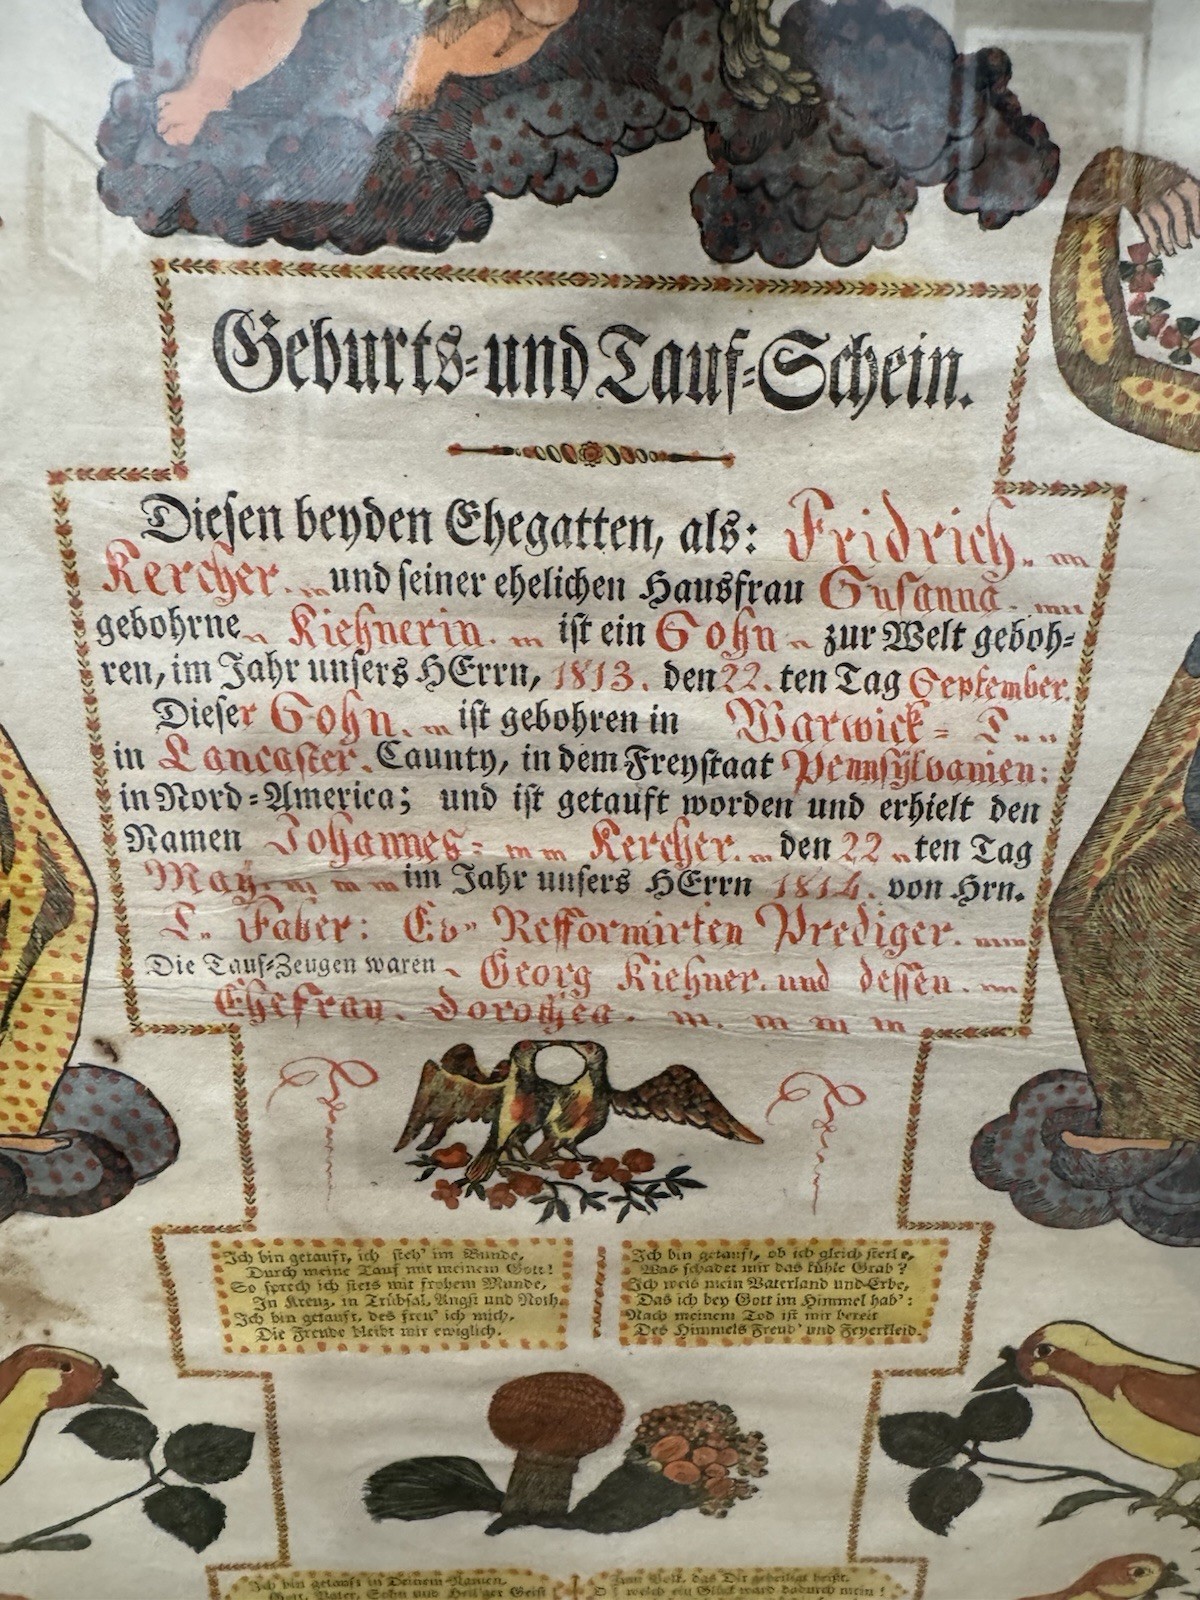 Geburts-und Tauf-Schein.
Diesen beyden Ehegatten, als: Fridrich.
Kercher. und seiner ehelichen Hausfrau Susanna.
gebohrne Kiehnerin. ist ein Sohn zur Welt geboh-
ren, im Jahr unsers HErrn, 1813. den 22. ten Tag September.
Dieser Sohn. ist gebohren in Warwick- T
in Lancaster. Caunty, in dem Freystaat Pennsylvanien:
in Nord-America; und ist getauft worden und erhielt den
Namen Johannes- Kercher. den 22 ten Tag
May. im Jahr unsers HErrn 1814. von Hrn.
Faber: Ev" Refformirten Prediger.
Die Tauf-Zeugen waren Georg Kiehner. und dessen.
Ehefrau. Dorothea.
Ich bin getauft, ich steh' im Bunde,
Durch meine Tauf mit meinem Gott!
So sprech ich stets mit frohem Munde,
In Kreuz, in Trübsal, Angst und Noth.
Ich bin getauft, des freu' ich mich,
Die Freude bleibt mir ewiglich.
Ich bin getauft, ob ich gleich sterbe,
Was schadet mir das kühle Grab?
Ich weis mein Vaterland und Erbe,
Das ich bey Gott im Himmel hab':
Nach meinem Tod ist mir bereit
Des Himmels Freud' und Feyerkleid.
Ich bin getauft in Deinem Namen,
Gott, Vater, Sohn und Heil'ger Geist
Zum Volk, das Dir geheiligt heißt.
O! welch ein Glück ward dadurch mein!